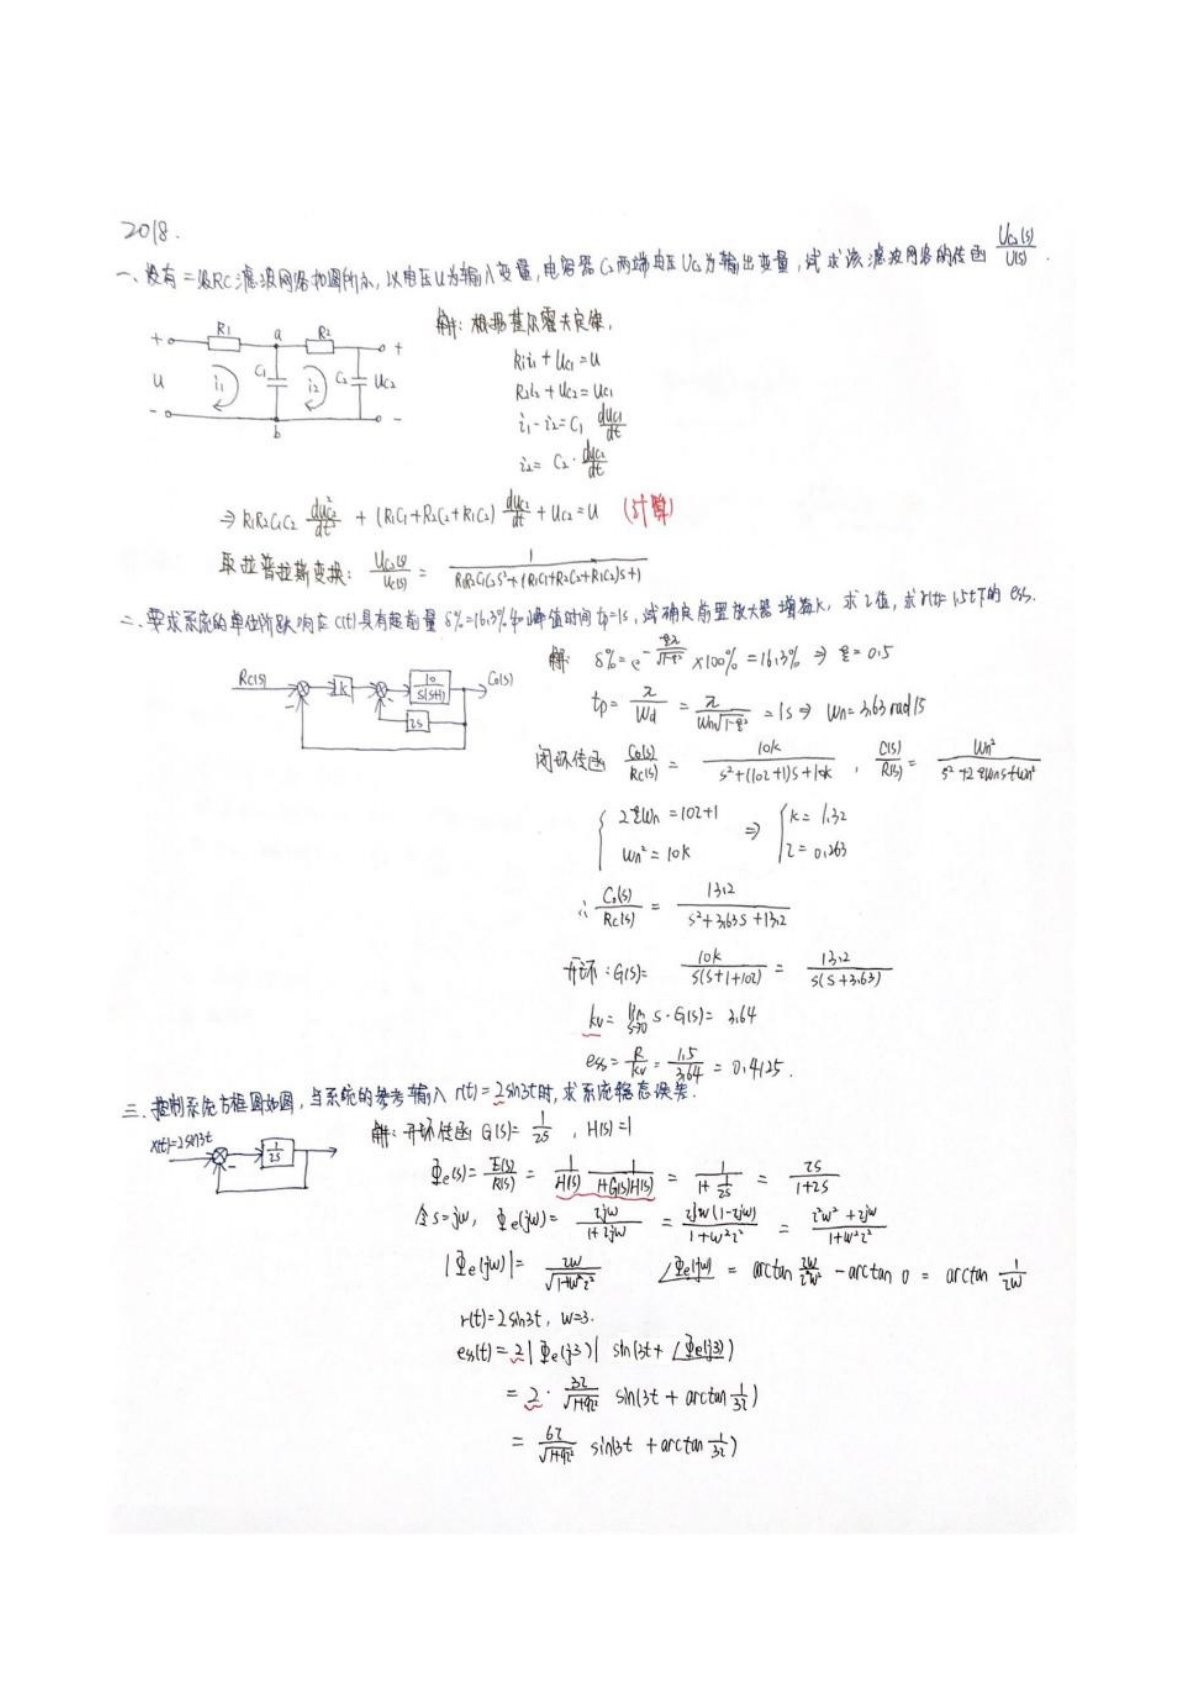 2018.
一、设有二级RC滤波网络如图所示,以电压u为输入变量,电容器C₂两端电压Uc₂为输出变量,试求该滤波网络的传函 Uc₂(s)/U(s).
解:根据基尔霍夫定律,
R₁ a R₂
+ +
R₁i₁+Uc₁=u
u i₁ C₁ i₂ C₂ Uc₂
R₂i₂+Uc₂=Uc₁
- -
b
i₁-i₂=C₁ duc₁/dt
i₂= C₂· duc₂/dt
⇒R₁R₂C₁C₂ duc₂²/dt² + (R₁C₁+R₂C₂+R₁C₂) duc₂/dt + Uc₂=u (计算)
取拉普拉斯变换: Uc₂(s)/Uc(s) = 1/(R₁R₂C₁C₂S²+(R₁C₁+R₂C₂+R₁C₂)S+1)
二、要求系统的单位阶跃响应c(t)具有超前量δ%=16.3%和峰值时间tp=1s,试确定前置放大器增益k,求τ值,求r(t)=1.5t下的ess.
解: δ%=e^(-ξπ/√(1-ξ²)) ×100%=16.3% ⇒ ξ=0.5
Rc(s) - k - 10/(S(S+1)) Co(s)
τs
tp= π/Wd = π/(Wn√(1-ξ²)) =1s ⇒ Wn=3.63rad/s
闭环传函 Co(s)/Rc(s) = 10k/(S²+(10τ+1)S+10k) , C(s)/R(s) = Wn²/(S²+2ξWnS+Wn²)
{ 2ξWn=10τ+1 ⇒ { k=1.32
Wn²=10k τ=0.263
∴ Co(s)/Rc(s) = 13.2/(S²+3.63S+13.2)
开环:G(s)= 10k/(S(S+1+10τ)) = 13.2/(S(S+3.63))
kv= lim s→0 S·G(s)= 3.64
ess= R/kv = 1.5/3.64 = 0.4125.
三.控制系统方框图如图,当系统的参考输入r(t)=2sin3t时,求系统稳态误差.
x(t)=2sin3t - 1/τs
解:开环传函 G(s)= 1/τs , H(s)=1
Φe(s)= E(s)/R(s) = 1/H(s) 1/(1+G(s)H(s)) = 1/(1+1/τs) = τs/(1+τs)
令s=jw, Φe(jw)= τjw/(1+τjw) = τjw(1-τjw)/(1+w²τ²) = (τ²w²+τjw)/(1+w²τ²)
|Φe(jw)|= τw/√(1+w²τ²) ∠Φe(jw) = arctan τw/τ²w² - arctan 0 = arctan 1/τw
r(t)=2sin3t, w=3.
ess(t)=2|Φe(j3)| sin(3t+∠Φe(j3))
= 2· 3τ/√(1+9τ²) sin(3t+arctan 1/3τ)
= 6τ/√(1+9τ²) sin(3t+arctan 1/3τ)